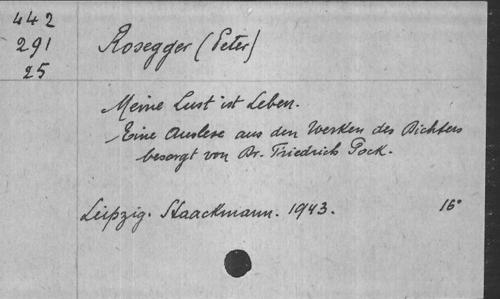 442
291
25
Rosegger (Peter)
Meine Lust ist Leben.
Eine Auslese aus den Werken des Dichters
besorgt von Dr. Friedrich Pock.
Leipzig. Staackmann. 1943. 16°